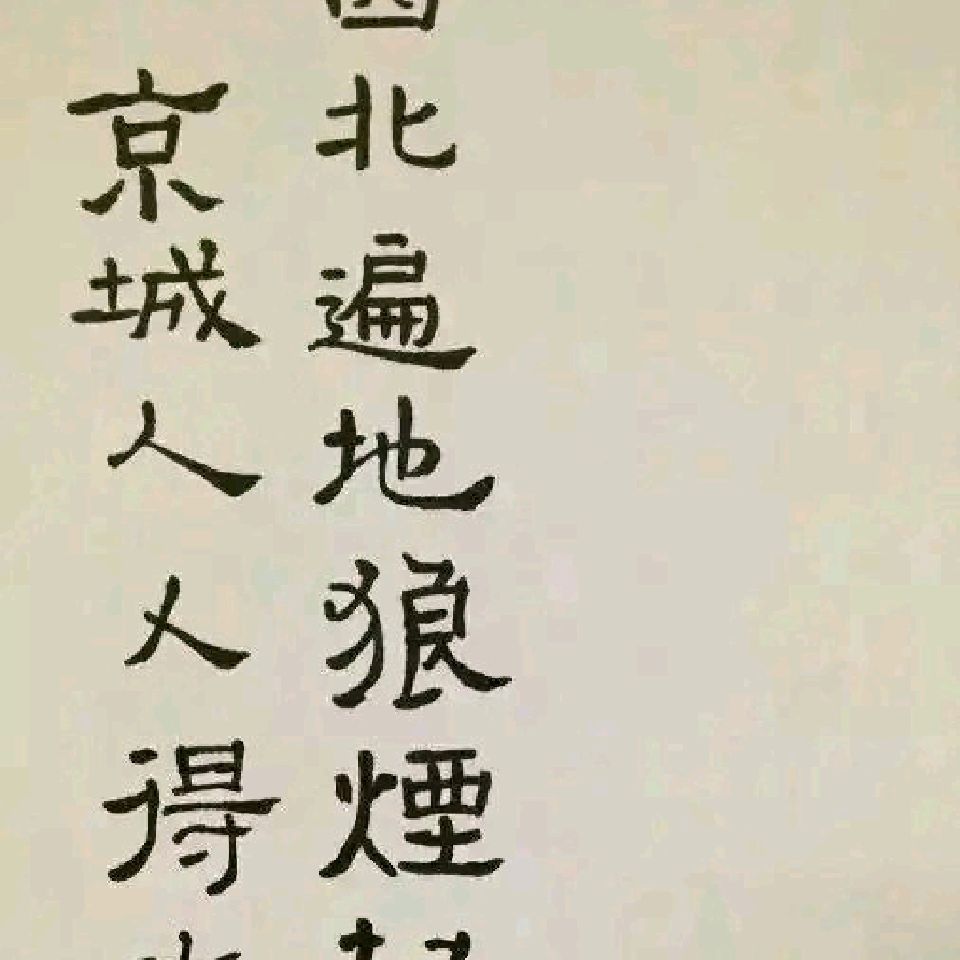 西北遍地狼煙起
京城人人得